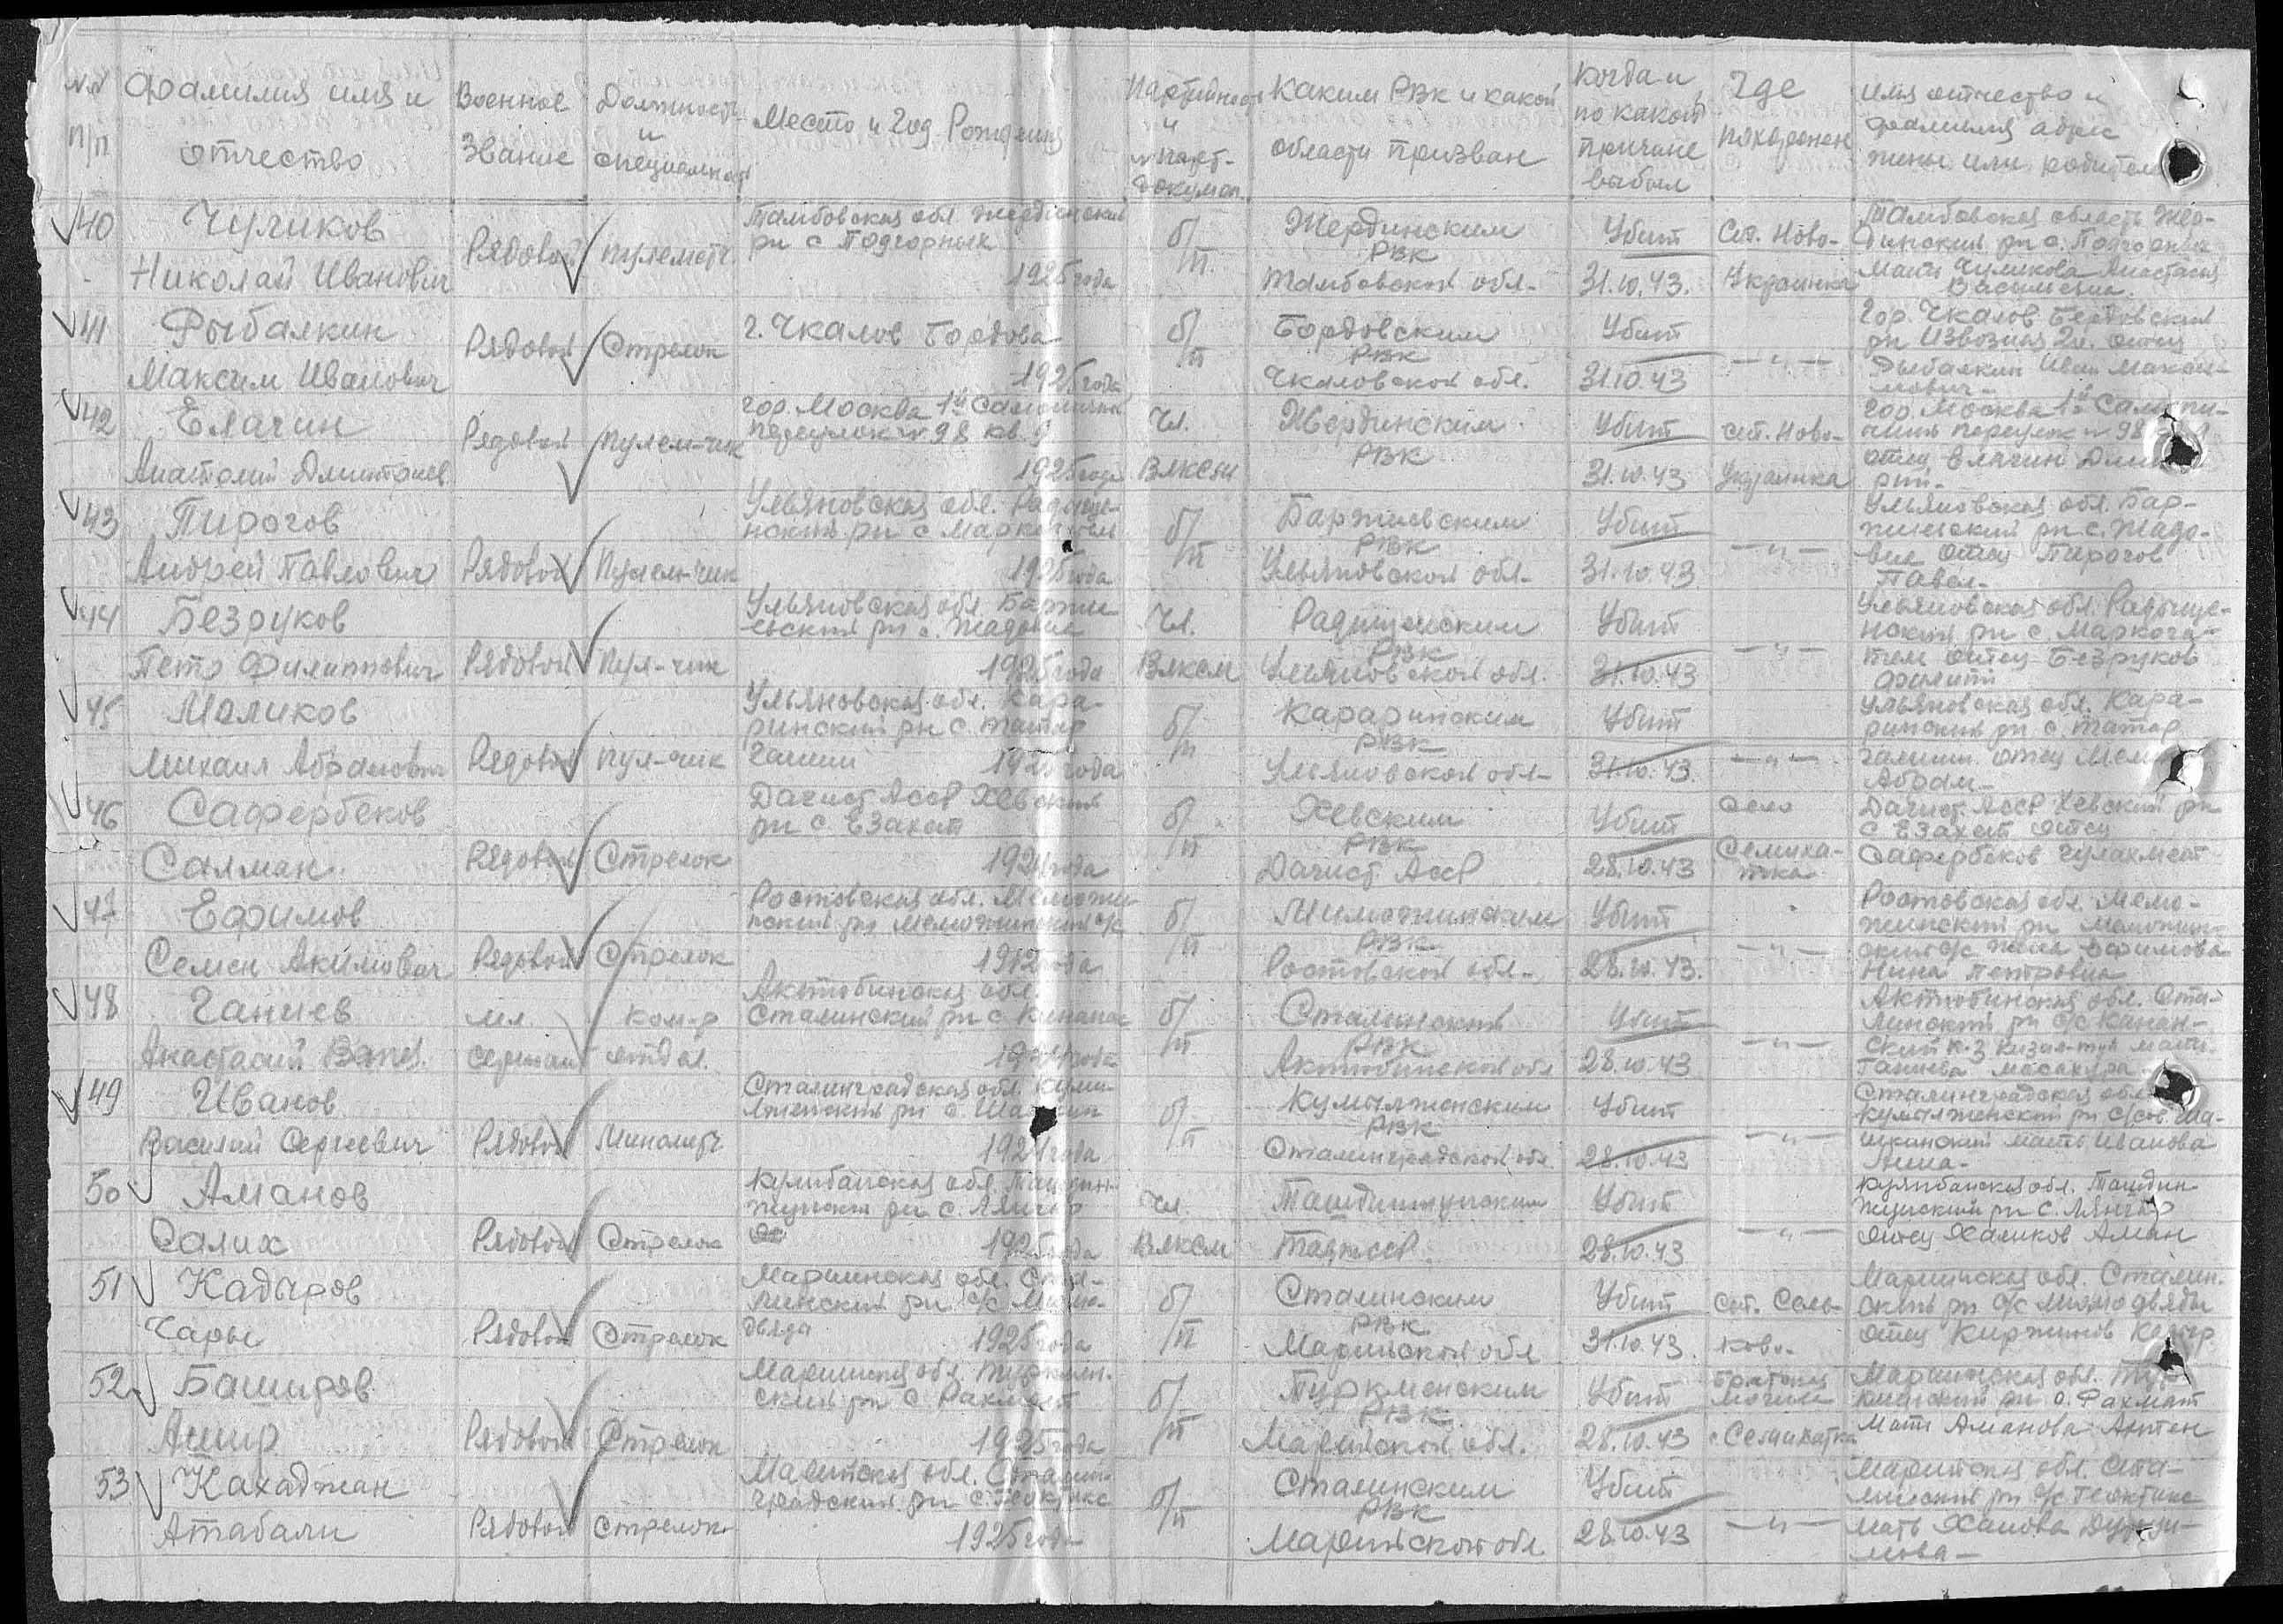 №№ п/п
Фамилия имя и отчество
Военное звание
Должность и специальност
Место и год Рождения
Партийност и № парт-докумен.
Каким РВК и какой области призван
Когда и по какой причине выбыл
Где похоронен
Имя отчество и фамилия адрес жены или родител
40
Чуликов
Николай Иванович
Рядовой
пулеметч.
Тамбовская обл Жердинский
рн с Подгорных
1925 года
б/п
Жердинским
РВК
Тамбовской обл-
Убит
31.10.43.
Ст. Ново-
Украинка
Тамбовская область Жер-
динский рн с.
Мать Чуликова Анастасия
Васильевна
41
Рыбалкин
Максим Иванович
Рядовой
Стрелок
г. Чкалов Бордова
1925 года
б/п
Бордовским
РВК
Чкаловской обл.
Убит
31.10.43
— " —
Гор. Чкалов Бердовский
рн Извозная 2и. отец
Рыбалкин Иван Макси-
мович-
42
Елагин
Анатолий Дмитриев.
Рядовой
Пулем-чик
гор. Москва 1й
переулок № 98 кв. 9
1925 года
Чл.
ВЛКСМ
Жердинским
РВК
Убит
31.10.43
ст. Ново-
Украинка
гор. Москва 1й
переулок № 98
отец Елагин Дмит
рий-
43
Пирогов
Андрей Павлович
Рядовой
Пулем-чик
Ульяновская обл. Радище-
нский рн с
1925 года
б/п
Баржиевским
РВК
Ульяновской обл-
Убит
31.10.43
— " —
Ульяновская обл. Бар-
рн с. Жадо-
вие отец Пирогов
Павел-
44
Безруков
Петр Филиппович
Рядовой
Пул-чик
Ульяновская обл. Баржи
евский рн с. Жадовие
1925 года
Чл.
ВЛКСМ
Радищенским
РВК
Ульяновской обл.
Убит
31.10.43
— " —
Ульяновская обл. Радище-
нский рн с. Маркоча-
тем отец Безруков
Филипп
45
Маликов
Михаил Абрамович
Рядовой
пул-чик
Ульяновская обл. Кара-
ринский рн с. Татар
1925 года
б/п
Караринским
РВК
Ульяновской обл-
Убит
31.10.43.
— " —
Ульяновская обл. Кара-
ринский рн с. Татар
отец
Абрам-
46
Сафербеков
Салман
Рядовой
Стрелок
Дагист АССР Хевский
рн с. Езахат
1924 года
б/п
Хевским
РВК
Дагист АССР
Убит
28.10.43
село
Семиха-
тка
Дагист. АССР Хевский рн
с Езахат отец
Сафербеков Гулахмет
47
Ефимов
Семен Акимович
Рядовой
Стрелок
Ростовская обл.
1912 года
б/п
РВК
Ростовской обл-
Убит
28.10.43.
— " —
Ростовская обл.
жена Ефимова
Нина Петровна
48
Ганиев
мл.
сержант
ком-р
отдел.
Актюбинская обл.
Сталинский рн с
б/п
Сталинский
РВК
Актюбинской обл
Убит
28.10.43
— " —
Актюбинская обл. Ста-
линский рн с/с Канан-
ский к-з мать
Ганиева
49
Иванов
Василий Сергеевич
Рядовой
Минометч
Сталинградская обл. Кумы-
лженский рн с.
1924 года
б/п
Кумылженским
РВК
Сталинградской обл.
Убит
28.10.43
— " —
Сталинградская обл
Кумылженский рн с/сов. Ша-
шкинский мать Иванова
Анна-
50
Аманов
Салих
Рядовой
Стрелок
Кулябанская обл.
рн с. Лянгар
1925 года
Чл.
ВЛКСМ
РВК
Таджсср.
Убит
28.10.43
— " —
Кулябанская обл.
рн с. Лянгар
отец Халиков Аман
51
Кадыров
Чары
Рядовой
Стрелок
Марыинская обл. Ста-
линский рн с/с
1925 года
б/п
Сталинским
РВК
Марыйской обл
Убит
31.10.43.
ст. Саль-
ково-
Марыйская обл. Сталин.
ский рн с/с
отец Киржинов Кадыр
52
Баширов
Ашир
Рядовой
Стрелок
Марыинская обл. Туркмен.
ский рн с Рахмет
1925 года
б/п
Туркменским
РВК
Марыйской обл.
Убит
28.10.43
Братская
могила
с Семихатка
Марыинская обл. Тур
кменский рн с. Рахмат
Мать Аманова Аптен
53
Кахаджан
Атабали
Рядовой
Стрелок
Марыйская обл. Сталин-
градский рн с. Геоктипе
1925 года
б/п
Сталинским
РВК
Марыйской обл
Убит
28.10.43
— " —
Марыйская обл. Ста-
линский рн с/с Геоктипе
мать Ханова
мова-